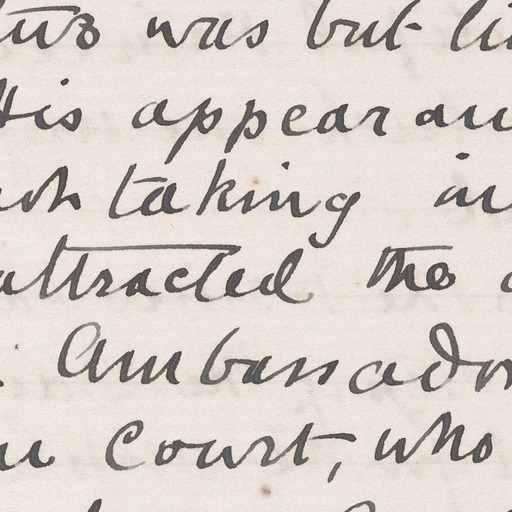 was but
His appearan
taking in
attracted the
Ambassador
Court, who